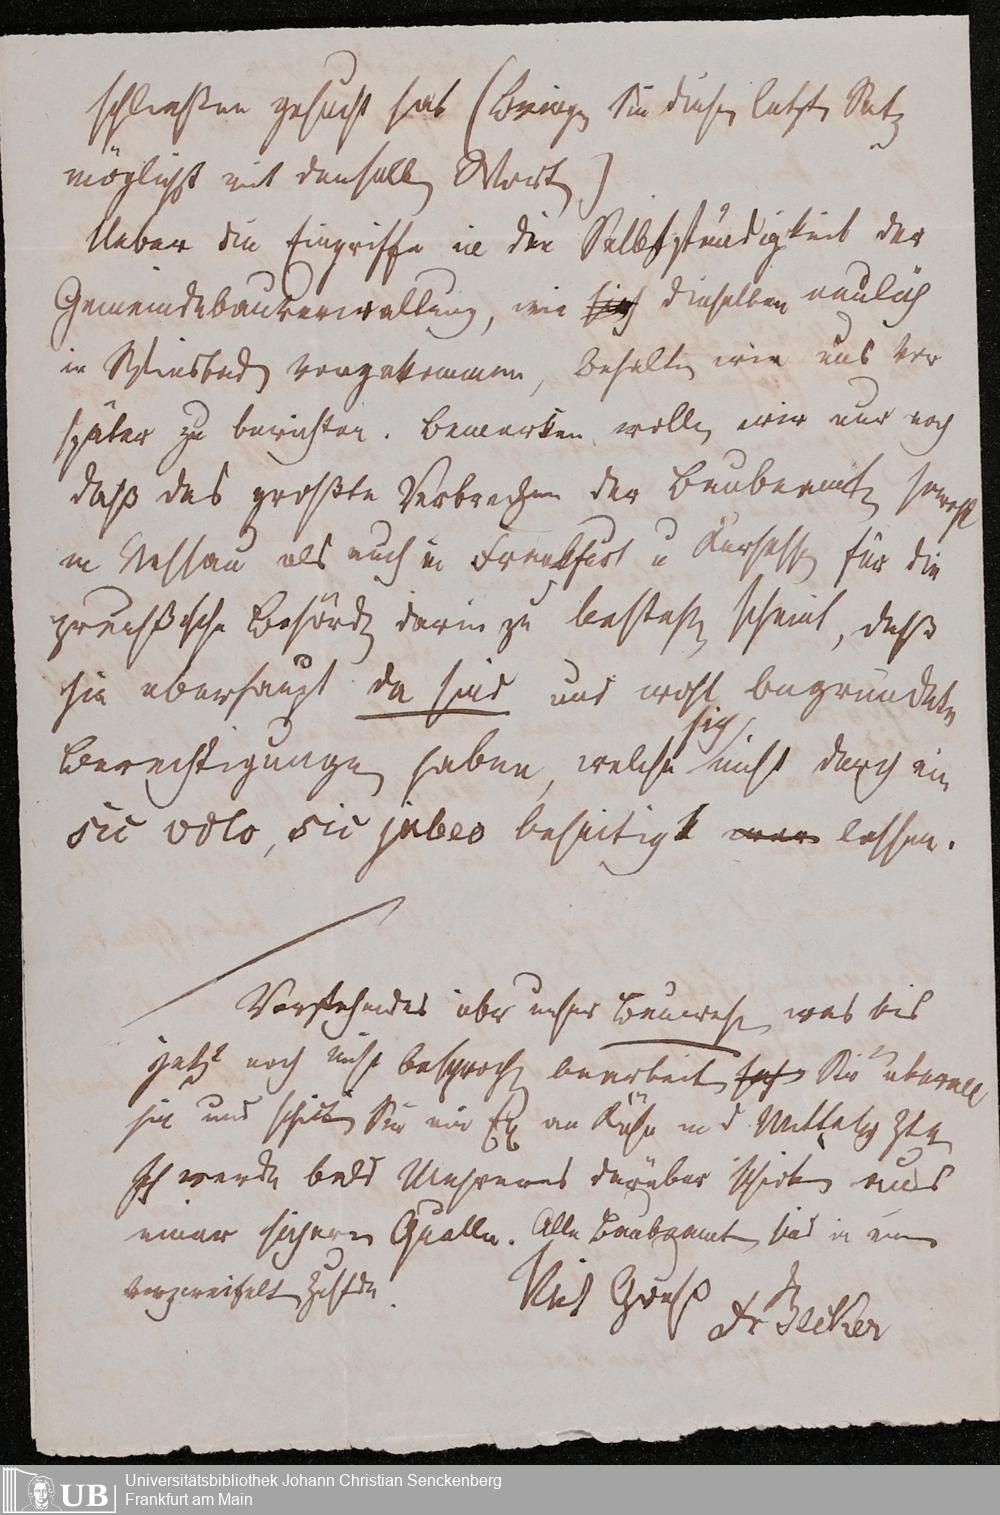 schließen gesucht hat (Bringen Sie diesen letzten Satz
möglichst mit denselben Worten)
Ueber die Eingriffe in die Selbstständigkeit der
Gemeindebauverwaltung, wie dieselben neulich
in Wiesbaden vorgekommen, behalten wir uns vor
später zu berichten. Bemerken wollen wir nur noch
daß das größte Verbrechen der Baubeamten sowohl
in Nassau als auch in Frankfurt u Kurhessen für die
preußische Behörden darin zu bestehen scheint, daß
sie überhaupt da sind und wohl begründete
Berechtigungen haben, welche sich nicht durch ein
sic volo, sic jubeo beseitigt lassen.
Vorstehendes über unser Bauwesen was bis
jetzt noch nicht besprochen bearbeiten Sie überall
hin und schicken Sie ein Ex an in d Mittelrh Ztg
Ich werde bald Mehreres darüber schicken aus
einer sichern Quelle. Alle Baubeamten sind in einem
verzweifelten Zustde.
Viel Grüße
Ihr
Dr Becker
UB Universitätsbibliothek Johann Christian Senckenberg
Frankfurt am Main